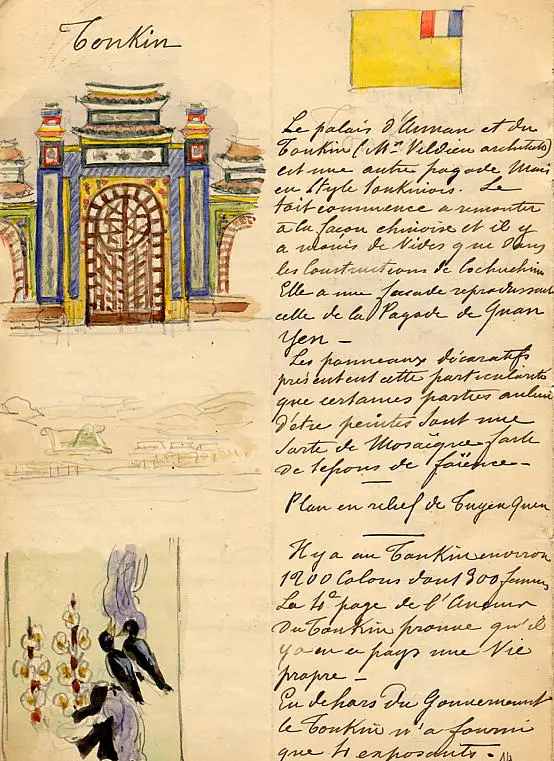 Tonkin
Le palais d'Annam et du
Tonkin (Mr. Vildieu architecte)
est une autre pagode mais
en style Tonkinois. Le
toit commence a remonter
a la façon chinoise et il y
a moins de vides que dans
les constructions de Cochinchine
Elle a une façade reproduisant
celle de la Pagode de Quan
Yen —
Les panneaux décoratifs
présentent cette particularité
que certaines parties au lieu
d'être peintes sont une
sorte de Mosaïque faite
de de faïence —
Plan en relief de Tuyen Quan
Il y a au Tonkin environ
1200 Colons dont 300 femmes
La 4e page de l'Avenir
du Tonkin prouve qu'il
y a en ce pays une vie
propre —
En dehors du Gouvernement
le Tonkin n'a fourni
que 4 exposants. 14